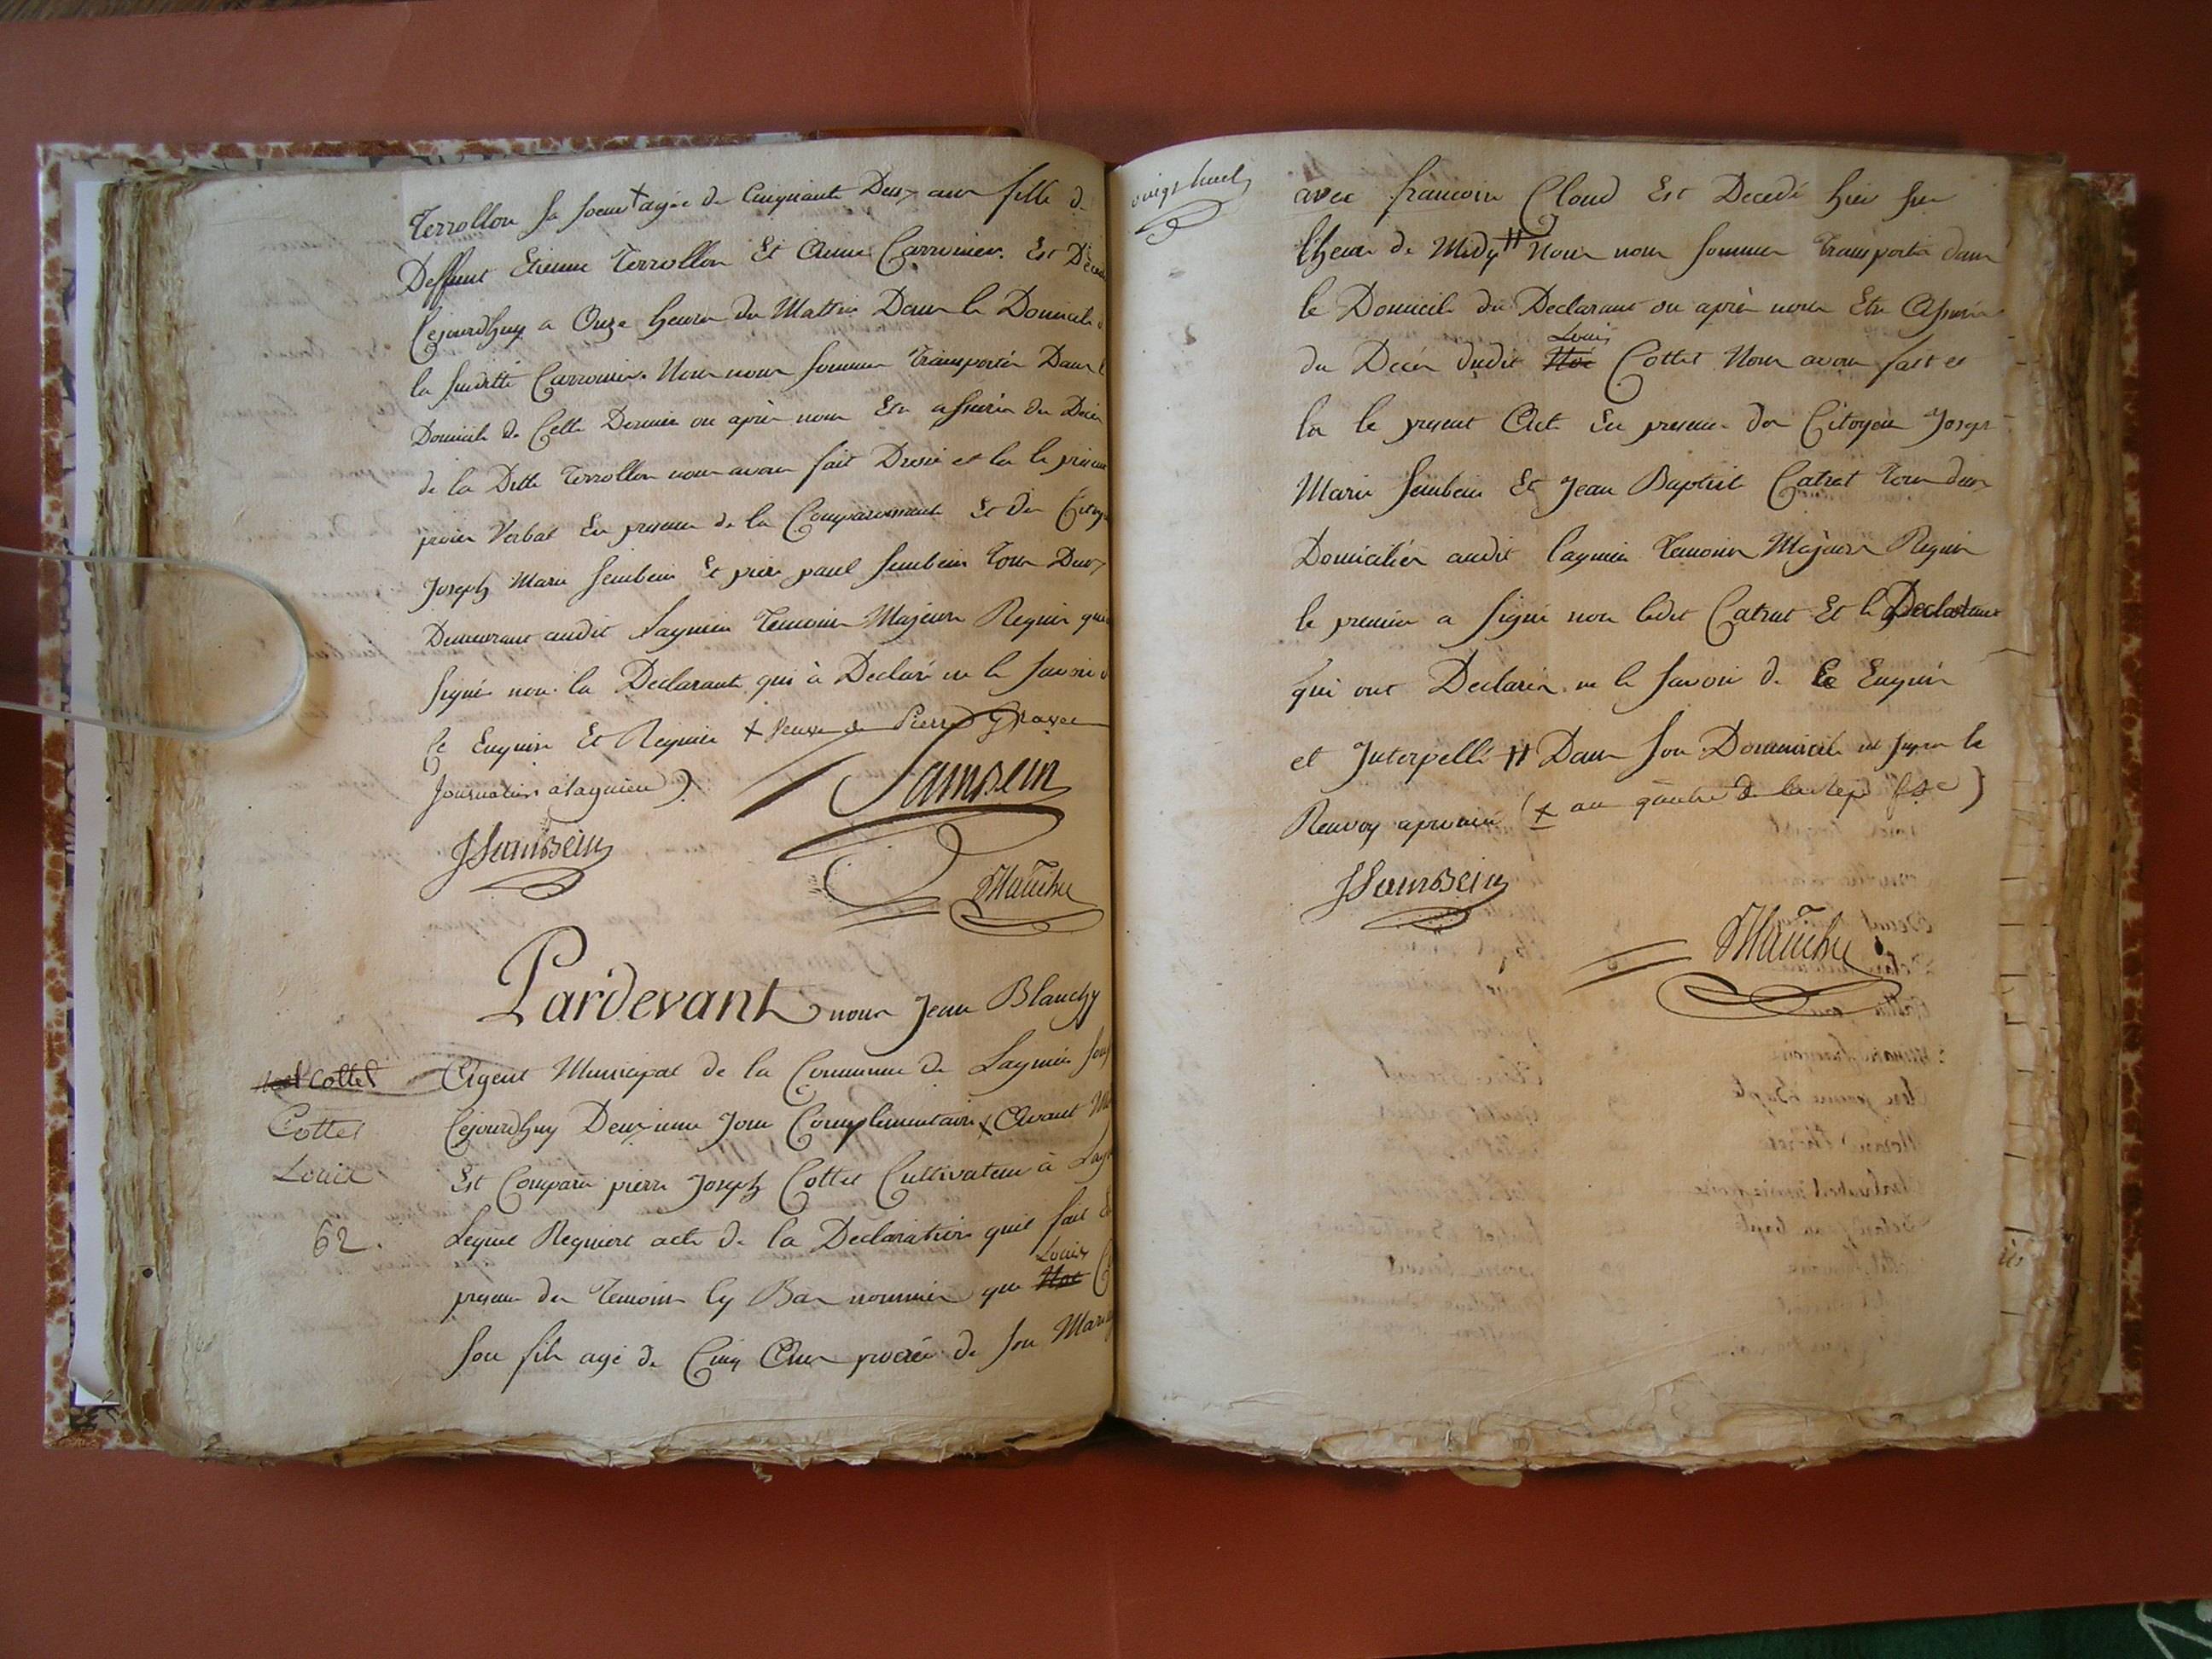 Terrollon sa soeur + agée de Cinquante Deux ans fille de
Deffunt Etienne Terrollon Et Anne Carronier. Est Décedé
Cejourdhuy a Onze heures du Mattin Dans le Domicile
la suditte Carronier. Nous nous sommes Transportés Dans
Domicile de Cette Derniere ou après nous Etre assurés du Décès
de la Ditte Terrollon nous avons fait Dressé et lu le présent
procès Verbal En presence de la Comparoissante Et Des Citoy
Joseph Marie Seinbein Et pierre paul Seinbein Tous Deux
Demeurant audit Lagnieu Temoins Majeurs Requis qui
signés non la Declarante qui à Declaré ne le savoir
Ce Enquise Et Requise + Veuve de Pierre
Journalier à lagnieu).
JSeinBein
Blanchy
Pardevant nous Jean Blanchy
Agent Municipal de la Commune de Lagnieu
Cejourdhuy Deuxieme Jour Complimentaire + Avant
Cottet
Louis
62.
Est Comparu pierre Joseph Cottet Cultivateur à
Lequel Requiert acte de la Declaration quil fait
Louis
presence des Temoins Cy Bas nommés que
son fils agé de Cinq Ans procréé de son Mari
vingt huit
avec francoise Cloud Est Decedé hier sur
l'heure de Midy # Nous nous sommes Transportés dans
le Domicile du Declarant ou après nous Etre Assurés
Louis
du Decès dudit Cottet Nous avons fait et
lu le present Acte En presence des Citoyens Joseph
Marie Seinbein Et Jean Baptiste Catrat Tous deux
Domiciliés audit Lagnieu Temoins Majeurs Requis
le premier a signé non ledit Catrat Et le Declarant
qui ont Declarés ne le savoir de Ce Enquis
et Interpellé # Dans son Domicile
Renvoy aprouvé (+ an quatre de la Rep. fse)
JSeinBein
Blanchy